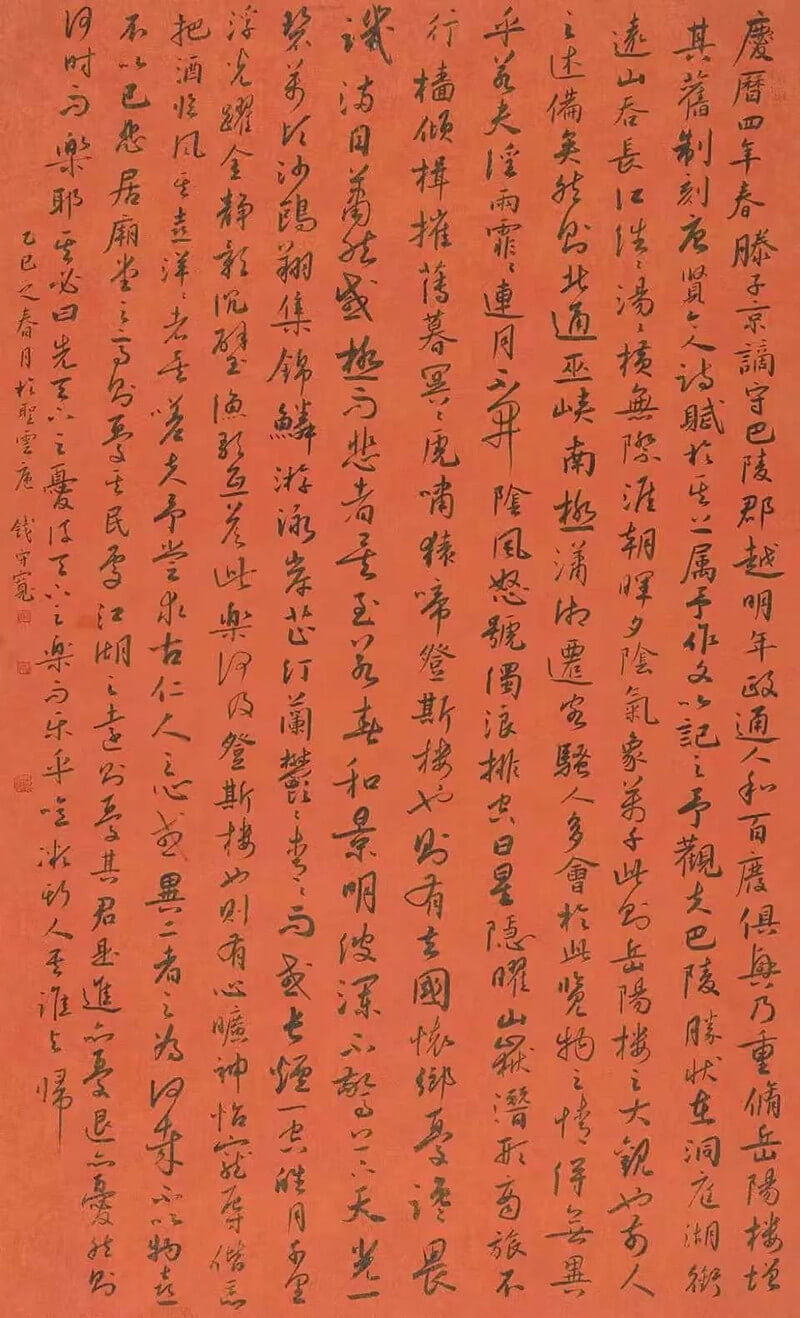 慶曆四年春滕子京謫守巴陵郡越明年政通人和百廢俱興乃重脩岳陽楼增
其舊制刻唐賢今人詩賦於其上属予作文以記之予觀夫巴陵勝状在洞庭湖銜
遠山吞長江浩々湯々横無際涯朝暉夕陰氣象萬千此則岳陽楼之大觀也前人
之述備矣然則北通巫峽南極瀟湘遷客騷人多會於此覽物之情得無異
乎若夫淫雨霏々連月不開陰風怒號濁浪排空日星隱曜山嶽潛形商旅不
行檣傾楫摧薄暮冥々虎嘯猿啼登斯楼也則有去國懷鄉憂讒畏
譏滿目蕭然感極而悲者矣至若春和景明波瀾不驚上下天光一
碧萬頃沙鷗翔集錦鱗游泳岸芷汀蘭鬱々青々而或長煙一空皓月千里
浮光躍金靜影沉璧漁歌互答此樂何及登斯楼也則有心曠神怡寵辱偕忘
把酒臨風其喜洋々者矣嗟夫予嘗求古仁人之心或異二者之為何哉不以物喜
不以己悲居廟堂之高則憂其民處江湖之遠則憂其君是進亦憂退亦憂然則
何時而樂耶其必曰先天下之憂後天下之樂而乐乎噫微斯人吾誰與歸
乙巳之春月於聖雲庵 錢守寬